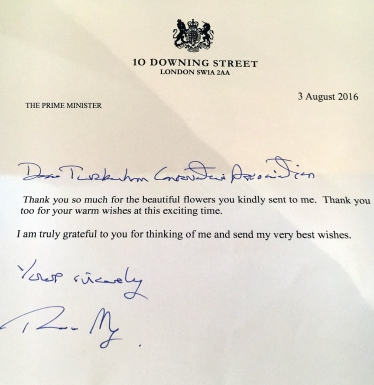 10 DOWNING STREET
LONDON SW1A 2AA
3 August 2016
THE PRIME MINISTER
Dear Twickenham Conservative Association
Thank you so much for the beautiful flowers you kindly sent to me. Thank you
too for your warm wishes at this exciting time.
I am truly grateful to you for thinking of me and send my very best wishes.
Yours sincerely